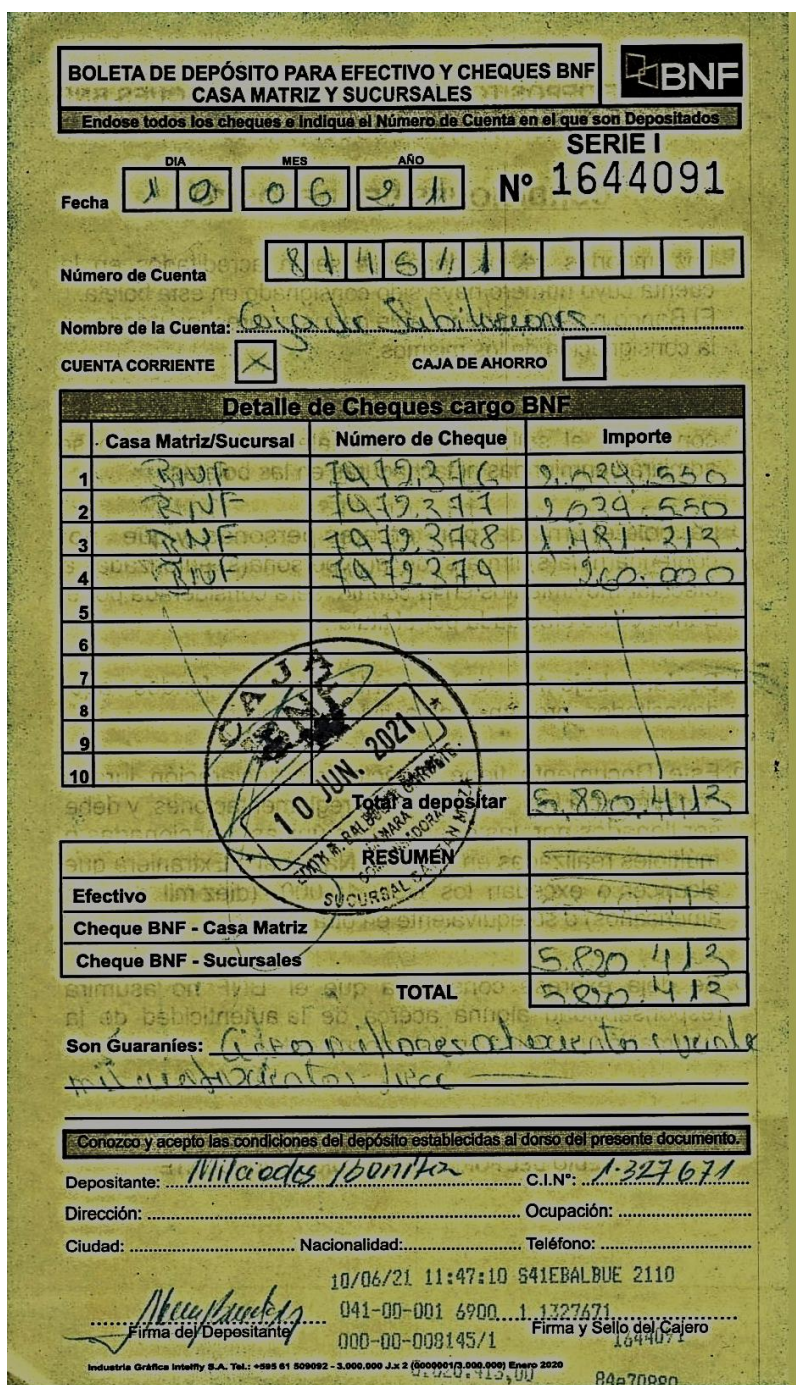 BOLETA DE DEPÓSITO PARA EFECTIVO Y CHEQUES BNF
CASA MATRIZ Y SUCURSALES
BNF
Endose todos los cheques e indique el Número de Cuenta en el que son Depositados
SERIE I
Nº 1644091
DIA MES AÑO
Fecha 10 06 21
Número de Cuenta 814511
Nombre de la Cuenta: Caja de Jubilaciones
CUENTA CORRIENTE X CAJA DE AHORRO
Detalle de Cheques cargo BNF
Casa Matriz/Sucursal Número de Cheque Importe
1 BNF 7472.376 2.029.550
2 BNF 7472.377 2.029.550
3 BNF 7472.378 1.481.313
4 BNF 7472.379
5
6
7
8
9
10
CAJA
BNF
10 JUN. 2021
SUCURSAL
Total a depositar 5.820.413
RESUMEN
Efectivo
Cheque BNF - Casa Matriz
Cheque BNF - Sucursales 5.820.413
TOTAL 5.820.413
Son Guaraníes: Cinco millones ochocientos veinte
mil cuatrocientos trece
Conozco y acepto las condiciones del depósito establecidas al dorso del presente documento.
Depositante: Milciades C.I.Nº: 1.327671
Dirección: Ocupación:
Ciudad: Nacionalidad: Teléfono:
10/06/21 11:47:10 S41EBALBUE 2110
041-00-001 6900 1 1327671
Firma del Depositante Firma y Sello del Cajero
000-00-008145/1 1644091
Industria Gráfica Intelfly S.A. Tel.: +595 61 509092 - 3.000.000 J.x 2 (0000001/3.000.000) Enero 2020